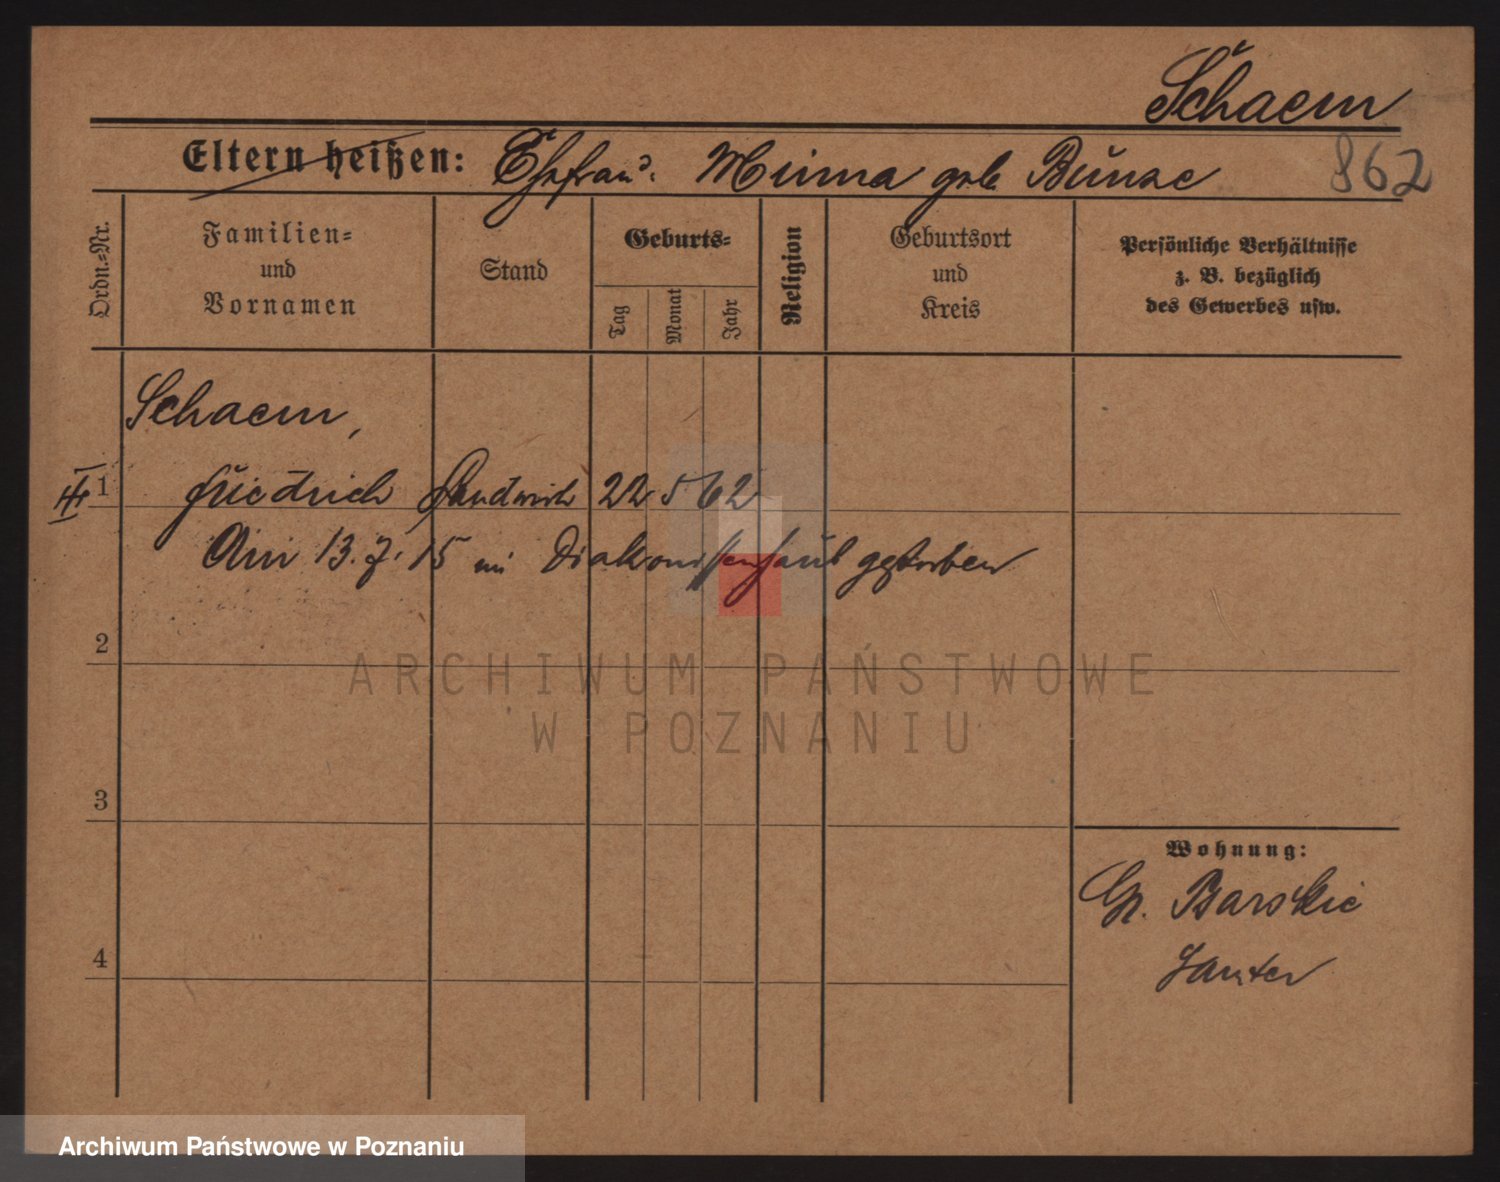 Schaem
Eltern heißen: Ehefrau: Minna geb Bunse
862
Ordn.-Nr.
Familien-
und
Vornamen
Stand
Geburts-
Tag
Monat
Jahr
Religion
Geburtsort
und
Kreis
Persönliche Verhältnisse
z. B. bezüglich
des Gewerbes usw.
Schaem,
1 Friedrich Landwirth 22 5 62
Am 13. 7. 15 im Diakonissenhaus gestorben
2
3
4
Wohnung:
Gr.
ARCHIWUM PAŃSTWOWE
W POZNANIU
Archiwum Państwowe w Poznaniu